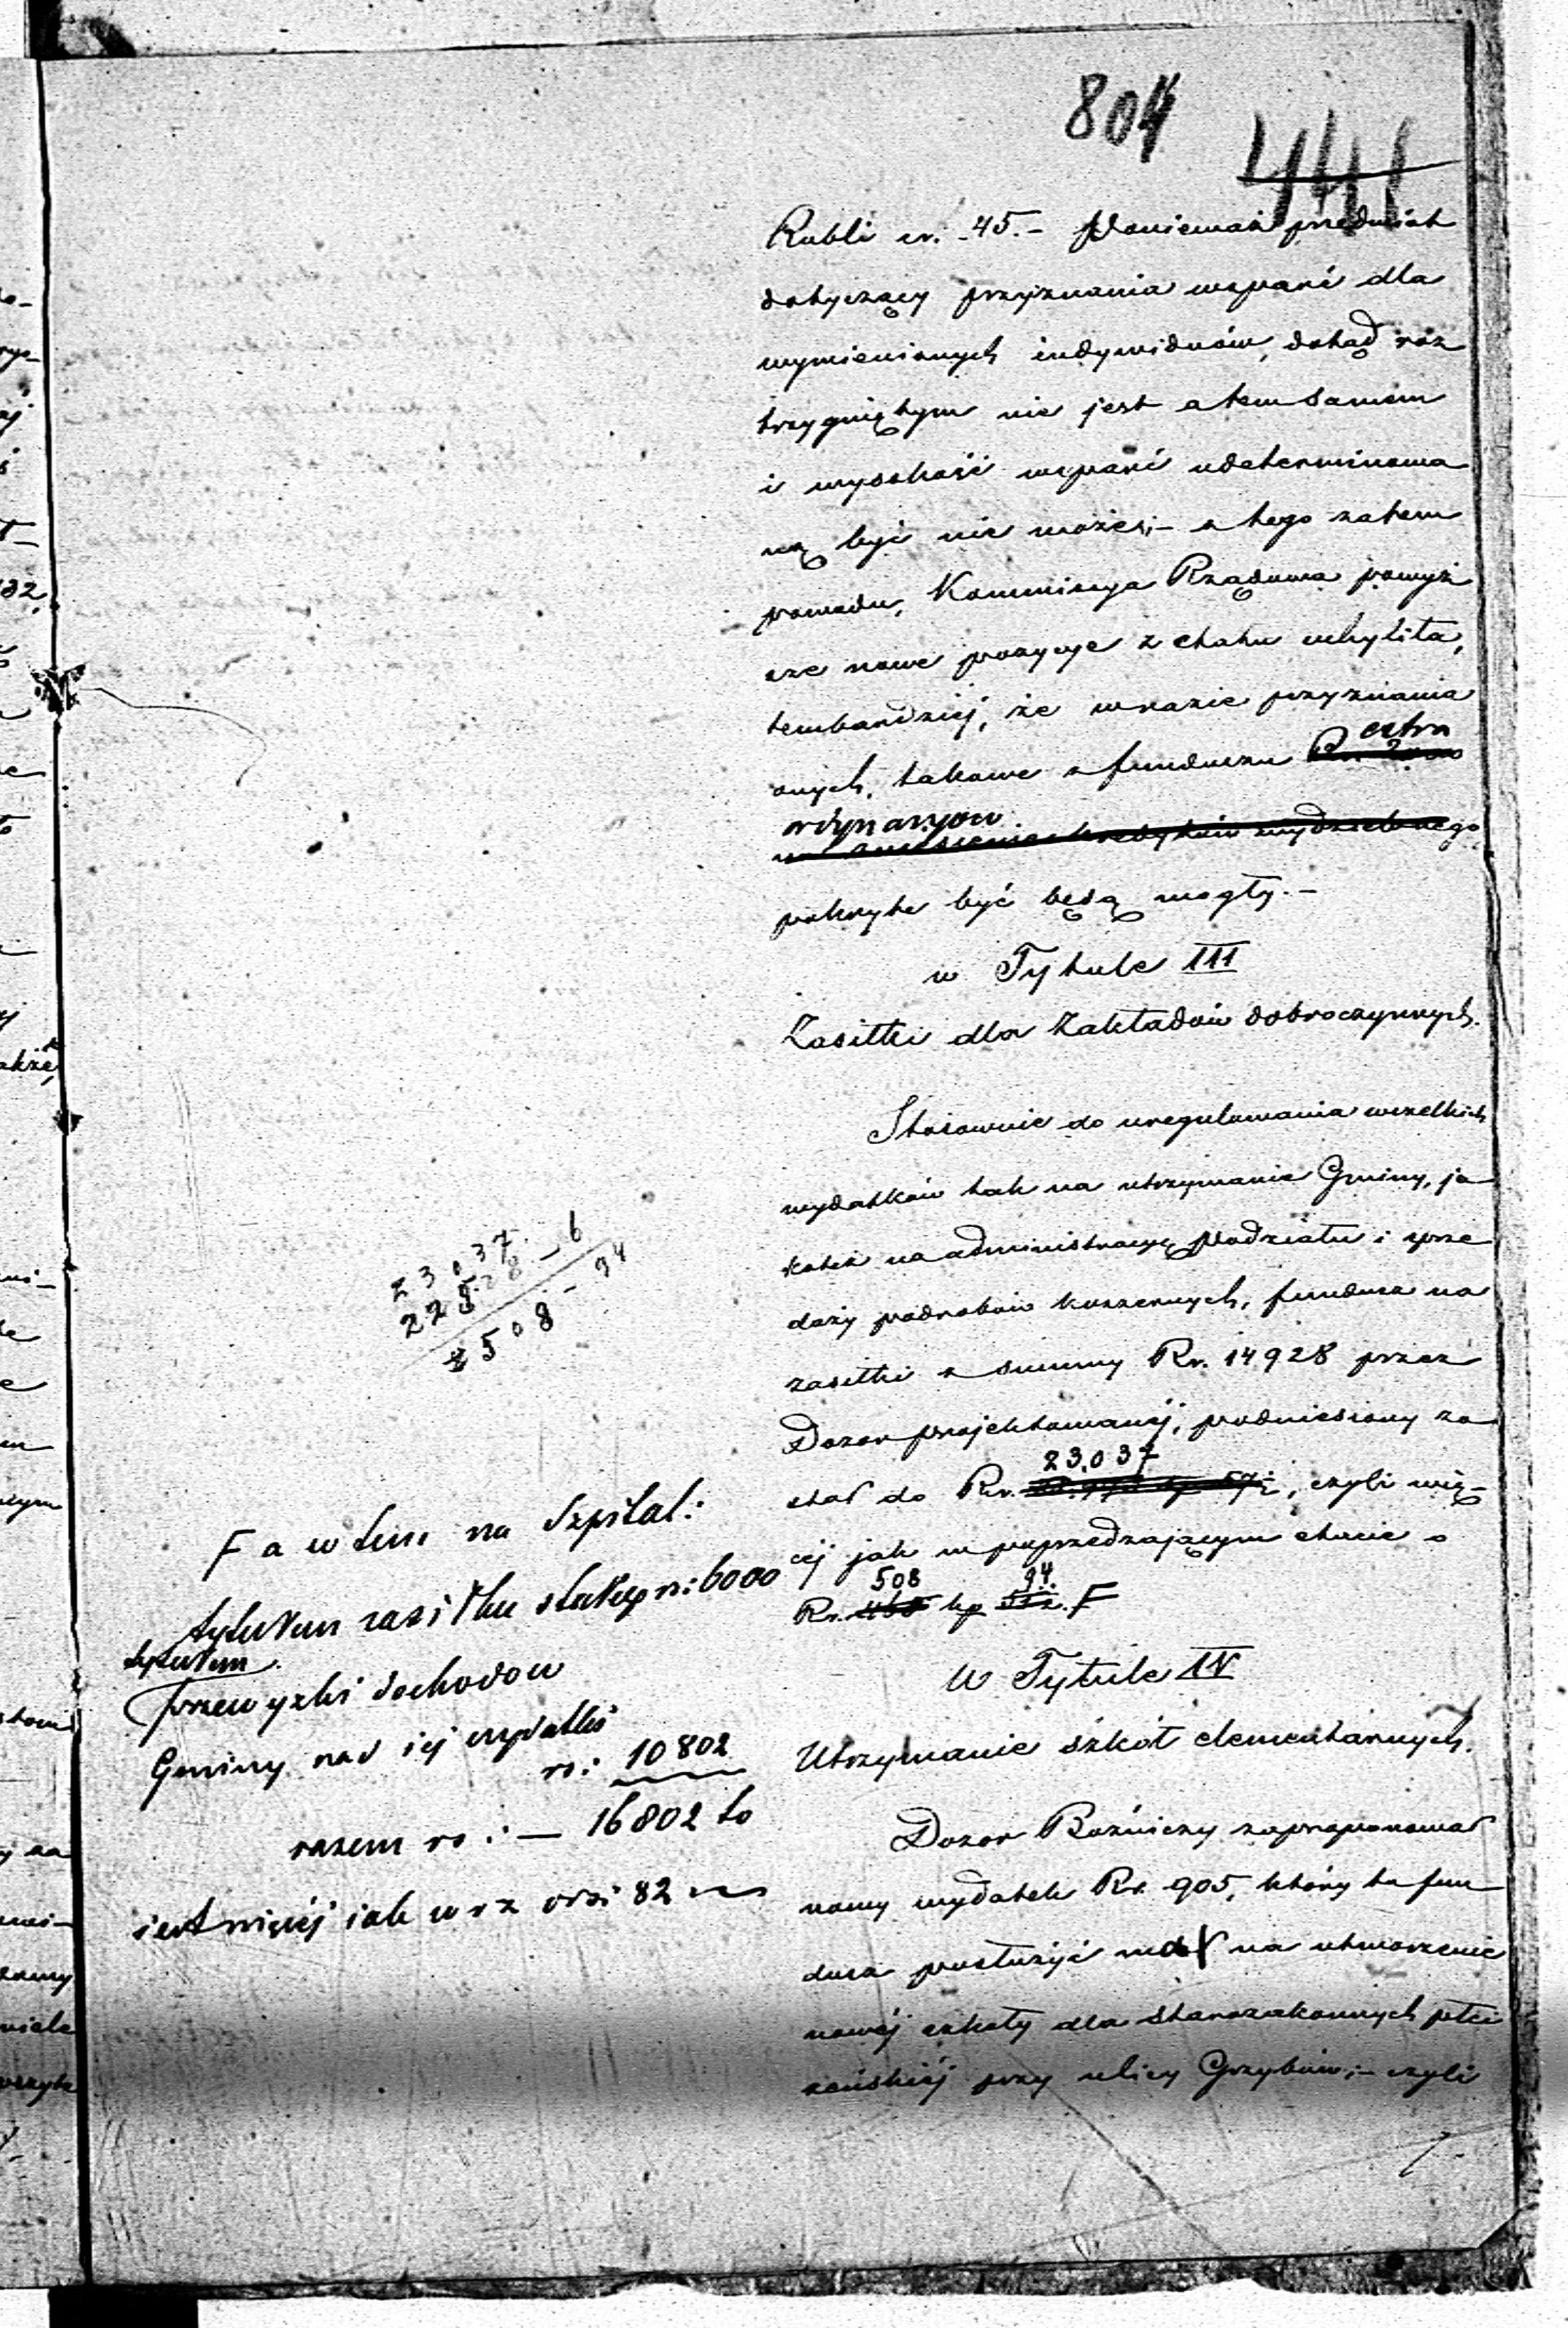 804
441
Rubli sr. 45.- Ponieważ przedmiot
dotyczący przyznania wsparć dla
wymienionych indywiduów, dotąd roz
trzygniętym nie jest a tem samem
i wysokość wsparć udeterminowa
ną być nie może;- z tego zatem
powodu, Kommissya Rządowa powyż
sze nowe pozycye z etatu uchyliła,
tembardziej, że w razie przyznania
onych, takowe z funduszu extra
ordynaryow
pokryte być będą mogły.-
w Tytule III
Zasiłki dla Zakładów dobroczynnych.
Stosownie do uregulowania wszelkich
wydatków tak na utrzymanie Gminy, ja
koteż na administracyę podziału i sprze
daży podrobów koszernych, fundusz na
zasiłki z summy Rs. 14928 przez
Dozor projektowanéj, podniesiony zo
23.037
stał do Rs. , czyli wię-
cej jak w poprzedzającym etacie o
508 94.
Rs. kp F
W Tytule IV
Utrzymanie szkół elementarnych.
Dozor Bóźniczy zaproponował
nowy wydatek Rs. 905, który to fun
dusz posłużyć miał na utworzenie
nowéj szkoły dla starozakonnych płci
żeńskiéj przy ulicy Grzybów;- czyli
23037.
22528-6
508-94
F a w tem na Szpital:
tytułem zasiłku stałego rs: 6000
tytułem
przewyżki dochodow
Gminy nad jej wydatki
rs: 10802
razem rs: — 16802 to
jest więcéj jak w r z 82